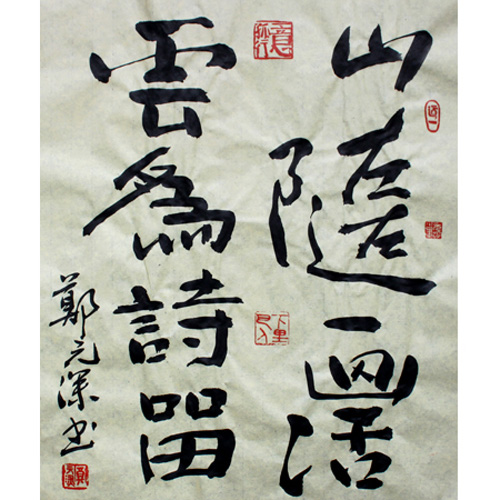 山隨畫活
雲為詩留
鄭元深书